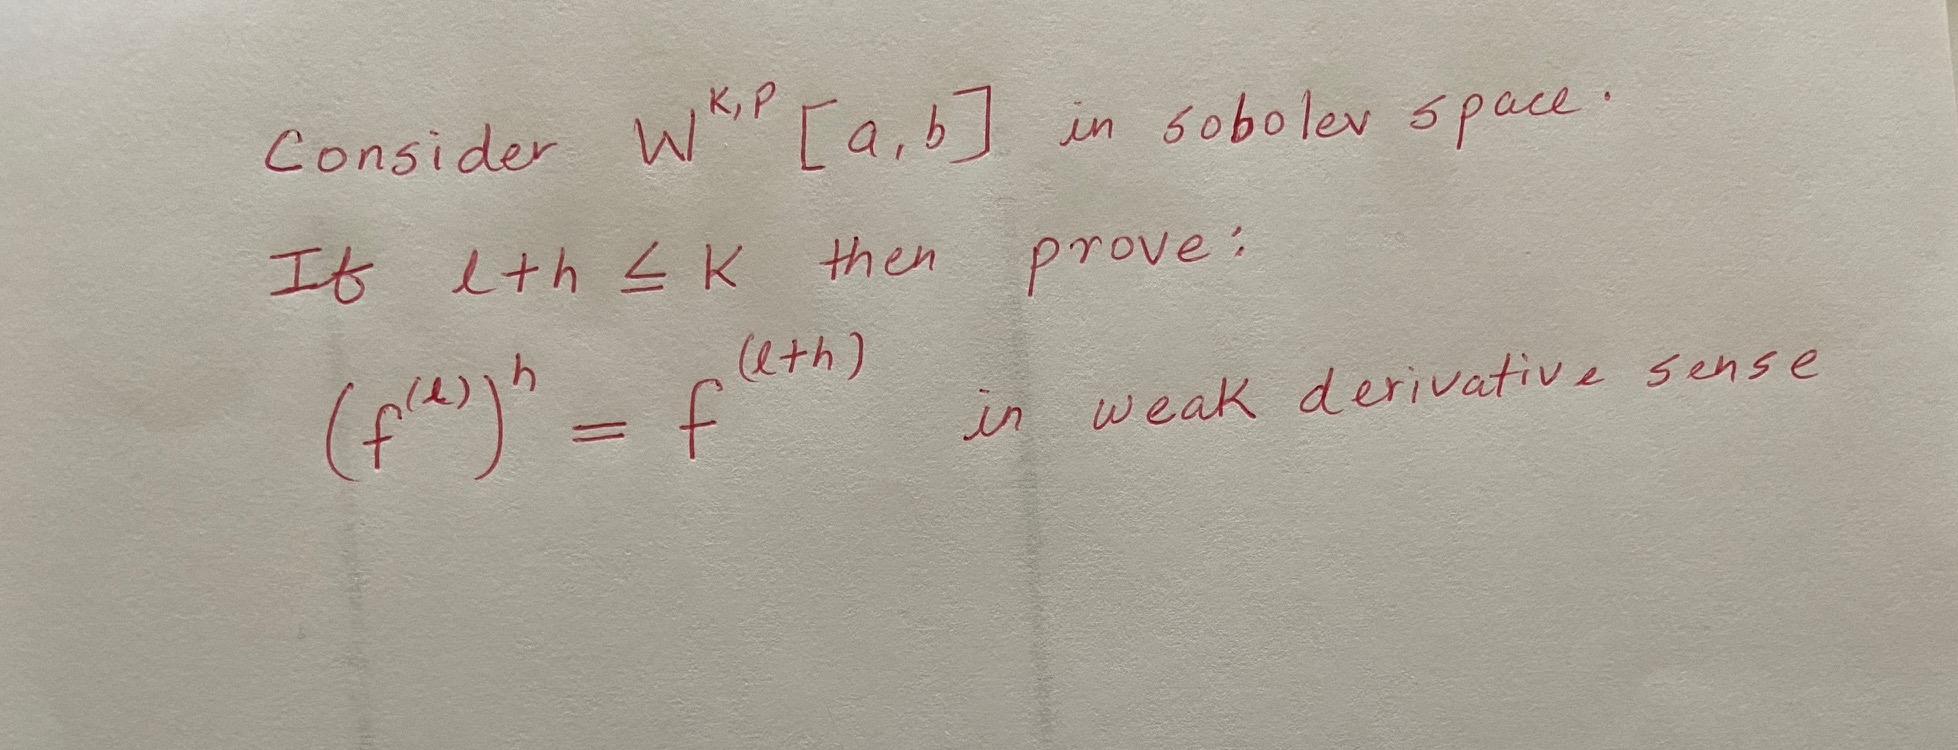 Consider W^{K,P} [a,b] in sobolev space.
If l+h ≤ K then prove:
(f^{(l)})^h = f^{(l+h)} in weak derivative sense